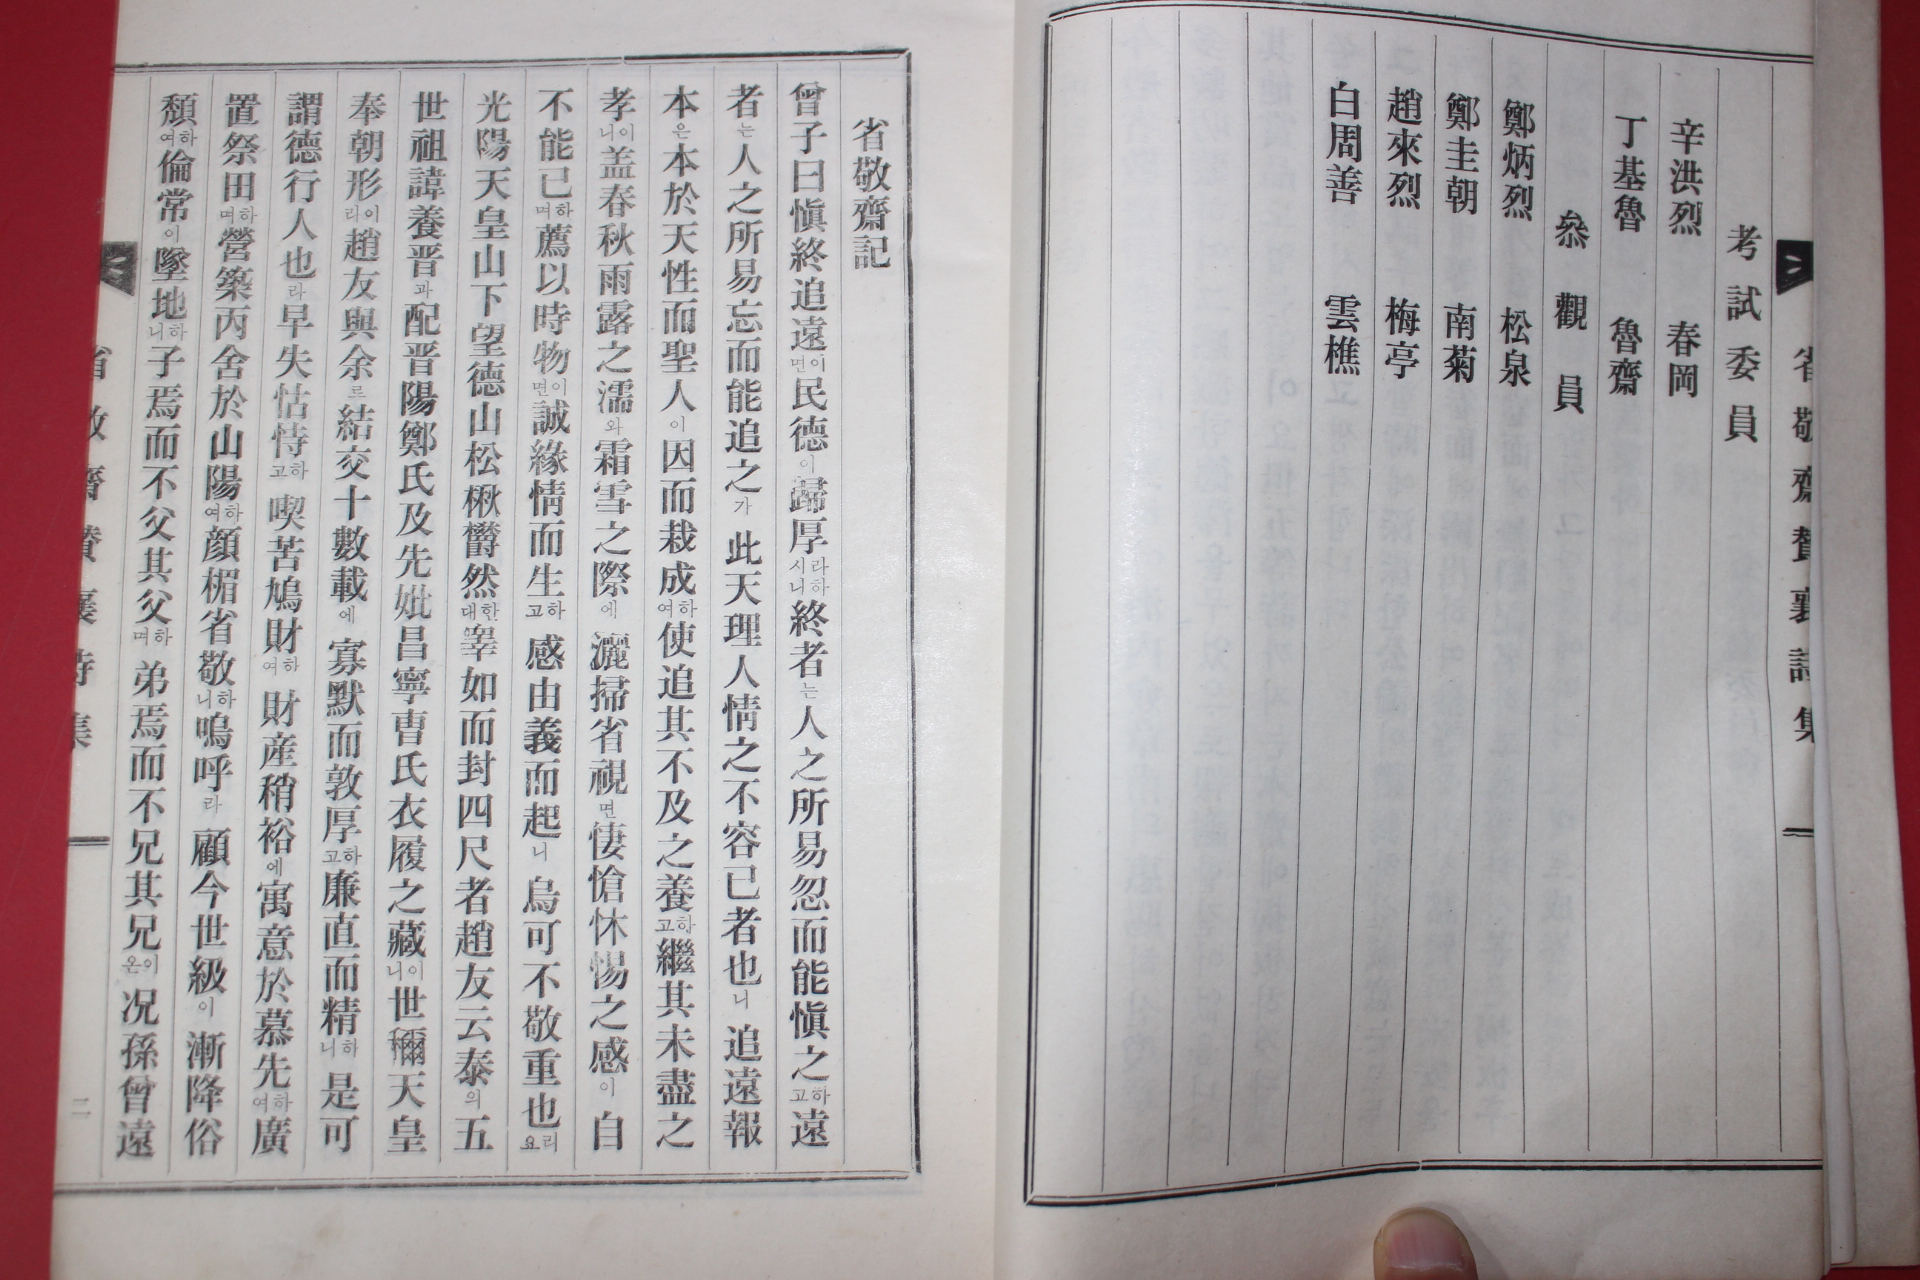 省敬齋贊襄詩集
考試委員
辛洪烈 春岡
丁基魯 魯齋
叅觀員
鄭炳烈 松泉
鄭圭朝 南菊
趙來烈 梅亭
白周善 雲樵
省敬齋記
曾子曰愼終追遠이면民德이歸厚라하시니終者는人之所易忽而能愼之하고遠
者는人之所易忘而能追之가此天理人情之不容已者也니追遠報
本은本於天性而聖人이因而栽成하여使追其不及之養하고繼其未盡之
孝니이盖春秋雨露之濡와霜雪之際에灑掃省視면悽愴怵惕之感이自
不能已하며薦以時物이면誠緣情而生하고感由義而起니烏可不敬重也리요
光陽天皇山下望德山松楸欝然한대睾如而封四尺者趙友云泰의五
世祖諱養晋과配晋陽鄭氏及先妣昌寧曺氏衣履之藏이니世穪天皇
奉朝形이리趙友與余로結交十數載에寡默而敦厚하고廉直而精하니是可
謂德行人也라早失怙恃하고喫苦鳩財하여財產稍裕에寓意於慕先하여廣
置祭田하며營築丙舍於山陽하여顔楣省敬하니嗚呼라顧今世級이漸降俗
頹하여倫常이墜地하니子焉而不父其父하며弟焉而不兄其兄이온况孫曾遠
省敬齋贊襄詩集
二